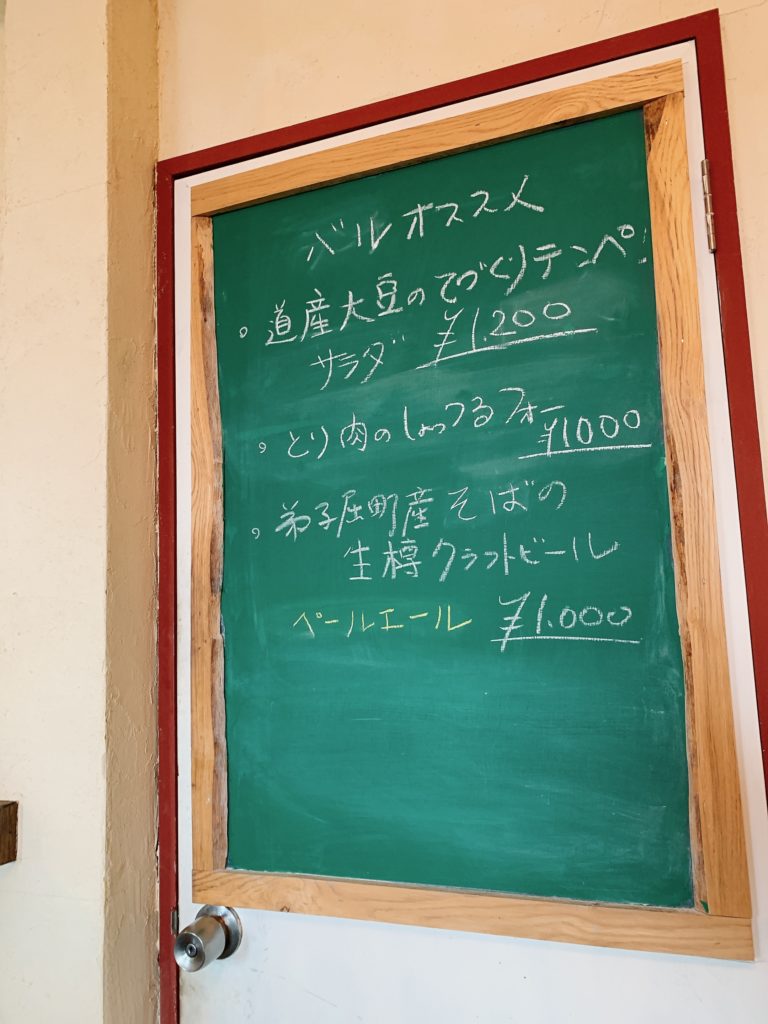 バルオススメ
。道産大豆のてづくりテンペ
サラダ ¥1.200
。とり肉のしょっつるフォー
¥1000
。弟子屈町産そばの
生樽クラフトビール
ペールエール ¥1.000